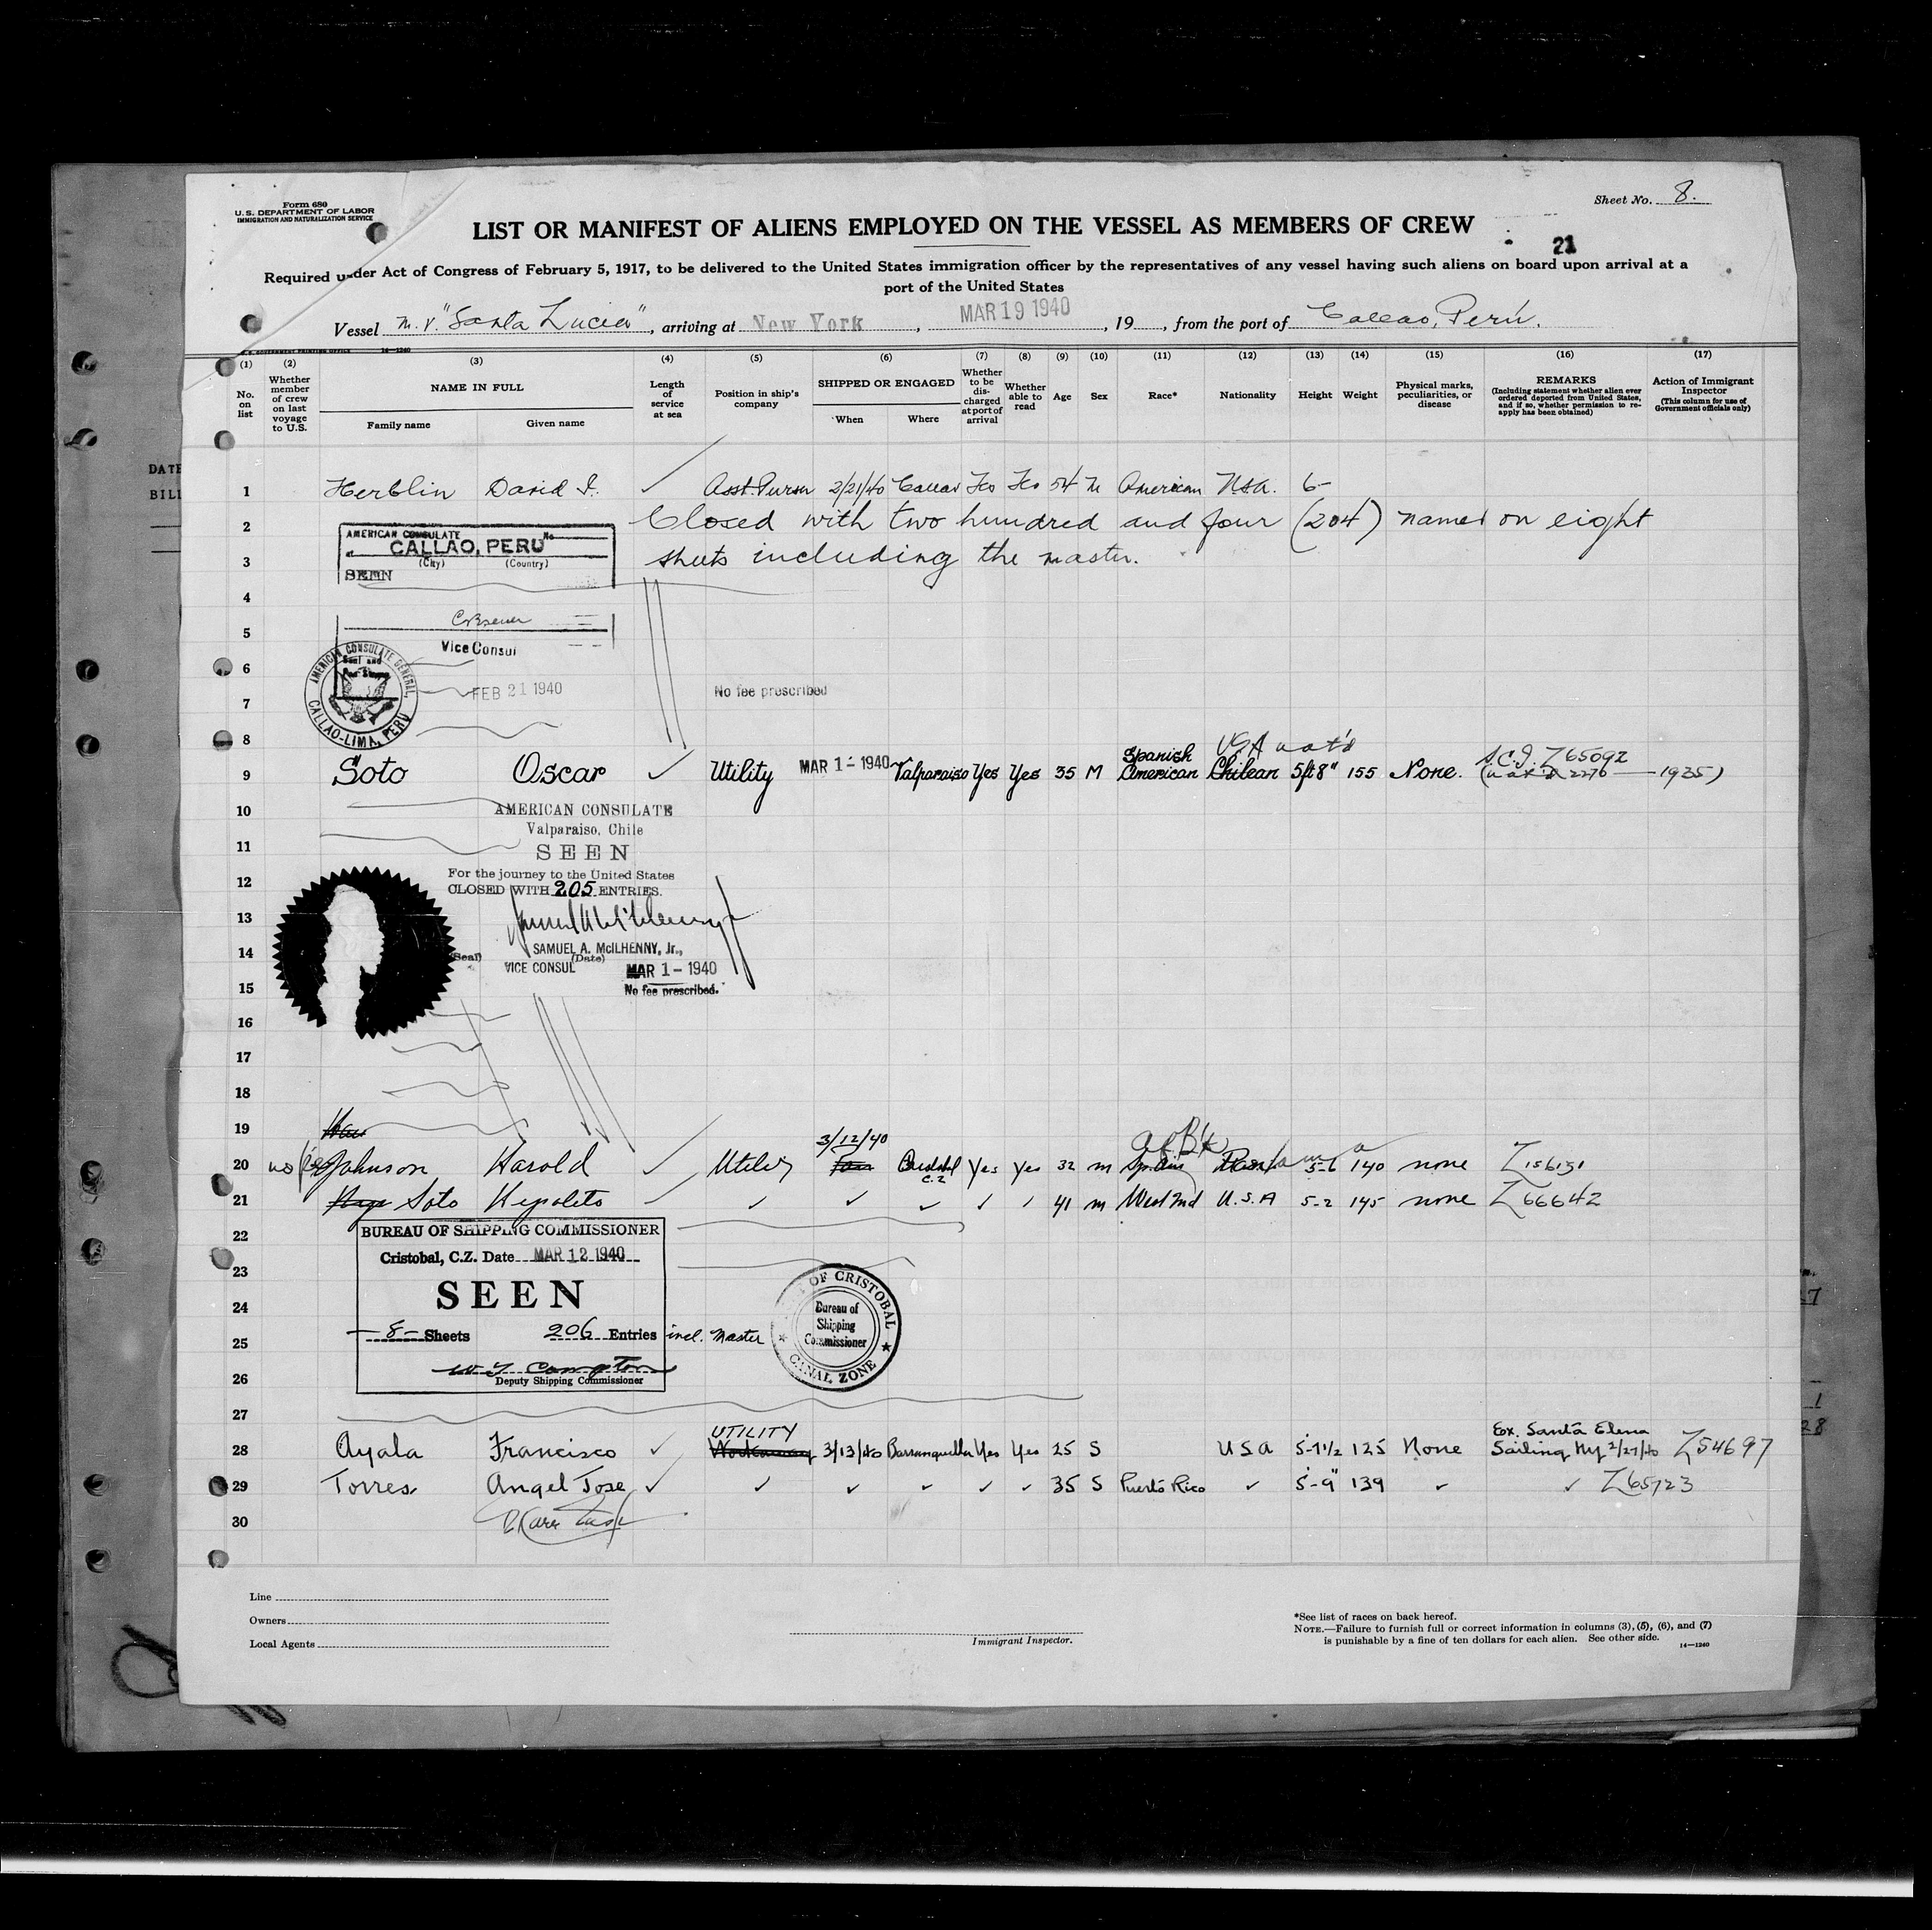 Form 680
U.S. DEPARTMENT OF LABOR
IMMIGRATION AND NATURALIZATION SERVICE
Sheet No. 8.
LIST OR MANIFEST OF ALIENS EMPLOYED ON THE VESSEL AS MEMBERS OF CREW
21
Required under Act of Congress of February 5, 1917, to be delivered to the United States immigration officer by the representatives of any vessel having such aliens on board upon arrival at a
port of the United States
Vessel M.V. "Santa Lucia", arriving at New York, MAR 19 1940, 19, from the port of Callao, Perú.
U.S. GOVERNMENT PRINTING OFFICE 14-1240
(1) (2) (3) (4) (5) (6) (7) (8) (9) (10) (11) (12) (13) (14) (15) (16) (17)
No. on list
Whether member of crew on last voyage to U.S.
NAME IN FULL
Family name Given name
Length of service at sea
Position in ship's company
SHIPPED OR ENGAGED
When Where
Whether to be discharged at port of arrival
Whether able to read
Age
Sex
Race*
Nationality
Height
Weight
Physical marks, peculiarities, or disease
REMARKS
(Including statement whether alien ever ordered deported from United States, and if so, whether permission to reapply has been obtained)
Action of Immigrant Inspector
(This column for use of Government officials only)
DATE
BILL
1 Herblin David ✓ Asst. Purser 2/21/40 Callao 54 M American USA. 6-
2 Closed with two hundred and four (204) names on eight
3 sheets including the master.
AMERICAN CONSULATE No
at CALLAO, PERU
(City) (Country)
SEEN
4
5
Vice Consul
6
AMERICAN CONSULATE GENERAL, CALLAO-LIMA, PERU
7 FEB 21 1940 No fee prescribed
8 USA nat'd
9 Soto Oscar ✓ Utility MAR 1 - 1940 Valparaiso Yes Yes 35 M Spanish American Chilean 5ft8" 155 None. Z65092 2270 — 1935)
10 AMERICAN CONSULATE
Valparaiso, Chile
11 SEEN
For the journey to the United States
12 CLOSED WITH 205 ENTRIES.
13
SAMUEL A. McILHENNY, Jr.,
14 (Seal) VICE CONSUL (Date) MAR 1 - 1940
15 No fee prescribed.
16
17
18
19
3/12/40
20 no Johnson Harold ✓ Utility Cristobal C.Z Yes Yes 32 m Panama 5-6 140 none Z156131
21 Soto Hepolito ✓ ✓ ✓ ✓ ✓ ✓ 41 m West Ind U.S.A 5-2 145 none Z66642
22 BUREAU OF SHIPPING COMMISSIONER
Cristobal, C.Z. Date MAR 12 1940
23
SEEN
24
25 -8- Sheets 206 Entries incl. Master
26 Deputy Shipping Commissioner
OF CRISTOBAL
Bureau of
Shipping
Commissioner
CANAL ZONE
27
UTILITY Ex. Santa Elena
28 Ayala Francisco ✓ Workaway 3/13/40 Barranquilla Yes Yes 25 S USA 5-7½ 125 None Sailing Ny 2/27/40 Z54697
29 Torres Angel Jose ✓ ✓ ✓ ✓ ✓ ✓ 35 S Puerto Rico ✓ 5-9" 139 ✓ ✓ Z65723
30
Line
Owners
Local Agents
Immigrant Inspector.
*See list of races on back hereof.
NOTE.—Failure to furnish full or correct information in columns (3), (5), (6), and (7)
is punishable by a fine of ten dollars for each alien. See other side.
14-1240